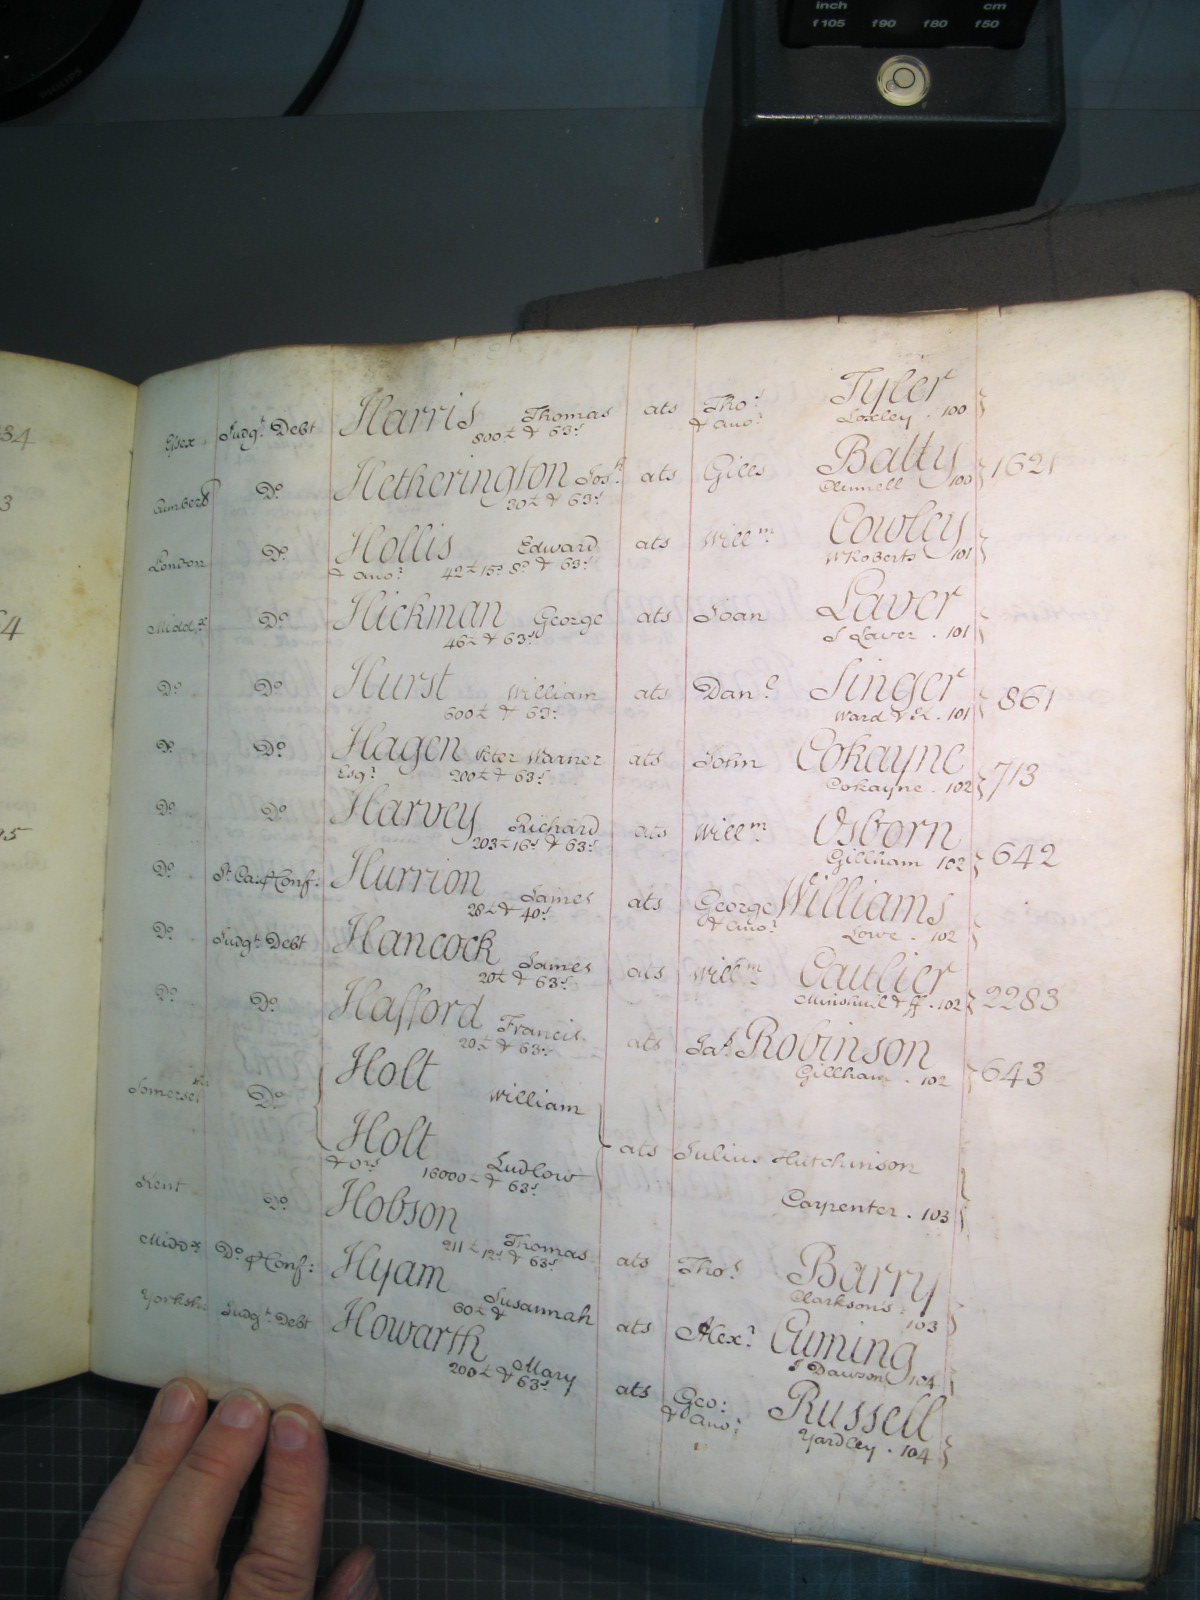 inch cm
f105 f90 f80 f50
PHILIPS
34
3
4
Essex Judgt. Debt Harris Thomas ats Thos. Tyler
800£ & 63s. & anor. Loxley . 100
Cumberd Do. Hetherington Josh. ats Giles Batty 1621
30£ & 63s. Clennell 100
London Do. Hollis Edward ats Willm. Cowley
& anor. 42£ 15s 8d & 63s. W Roberts 101
Middx. Do. Hickman George ats Joan Laver
46£ & 63s. J Laver . 101
Do. Do. Hurst William ats Danl. Singer 861
600£ & 63s. Ward 101
Do. Do. Hagen Peter Warner ats John Cokayne 713
Esqr. 200£ & 63s. Cokayne . 102
Do. Do. Harvey Richard ats Willm. Osborn 642
203£ 16s. & 63s. Gillham 102
Do. & Conf: Hurrion James ats George Williams
28£ & 40s. & anor. Lowe . 102
Do. Judgt. Debt Hancock James ats Willm. Caulier 2283
20£ & 63s. Minshull & ff . 102
Do. Do. Hafford Francis ats Jas. Robinson 643
20£ & 63s. Gillham . 102
Somerset Do. Holt William
Holt Ludlow ats Julius Hutchinson
& ors. 16000£ & 63s. Carpenter . 103
Kent Do. Hobson Thomas ats Thos. Barry
211£ 12s. & 63s. Clarksons . 103
Middx. Do. & Conf: Hyam Susannah ats Alexr. Cuming
60£ & J Dawson 104
Yorkshr Judgt. Debt Howarth Mary ats Geo: Russell
200£ & 63s. & anor. Yardley . 104